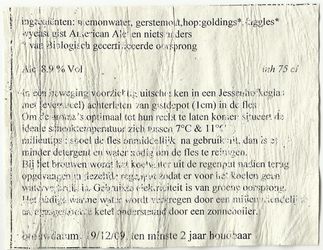 ingrediënten: bronwater, gerstemout,hop:goldings*,fuggles*
wyeast gist American Ale en niets anders
* van Biologisch gecertificeerde oorsprong
Alc 8.9 % Vol inh 75 cl
In een beweging voorzichtig uitschenken in een
achterlaten van gistdepot (1cm) in de fles
Om de aroma's optimaal tot hun recht te laten komen
ideale schenktemperatuur zich tussen 7°C & 11°C
milieutips: spoel de fles onmiddellijk na gebruik, dan is er
minder detergent en water nodig om de fles te reinigen.
Bij het brouwen wordt het koelwater uit de regenput nadien terug
opgevangen in dezelfde regenput zodat er voor het koelen geen
water is. Gebruikte elektriciteit is van groene oorsprong.
Het nodige warme water wordt verkregen door een
ketel ondersteund door een zonneboiler.
brouwdatum: 19/12/09, ten minste 2 jaar houdbaar